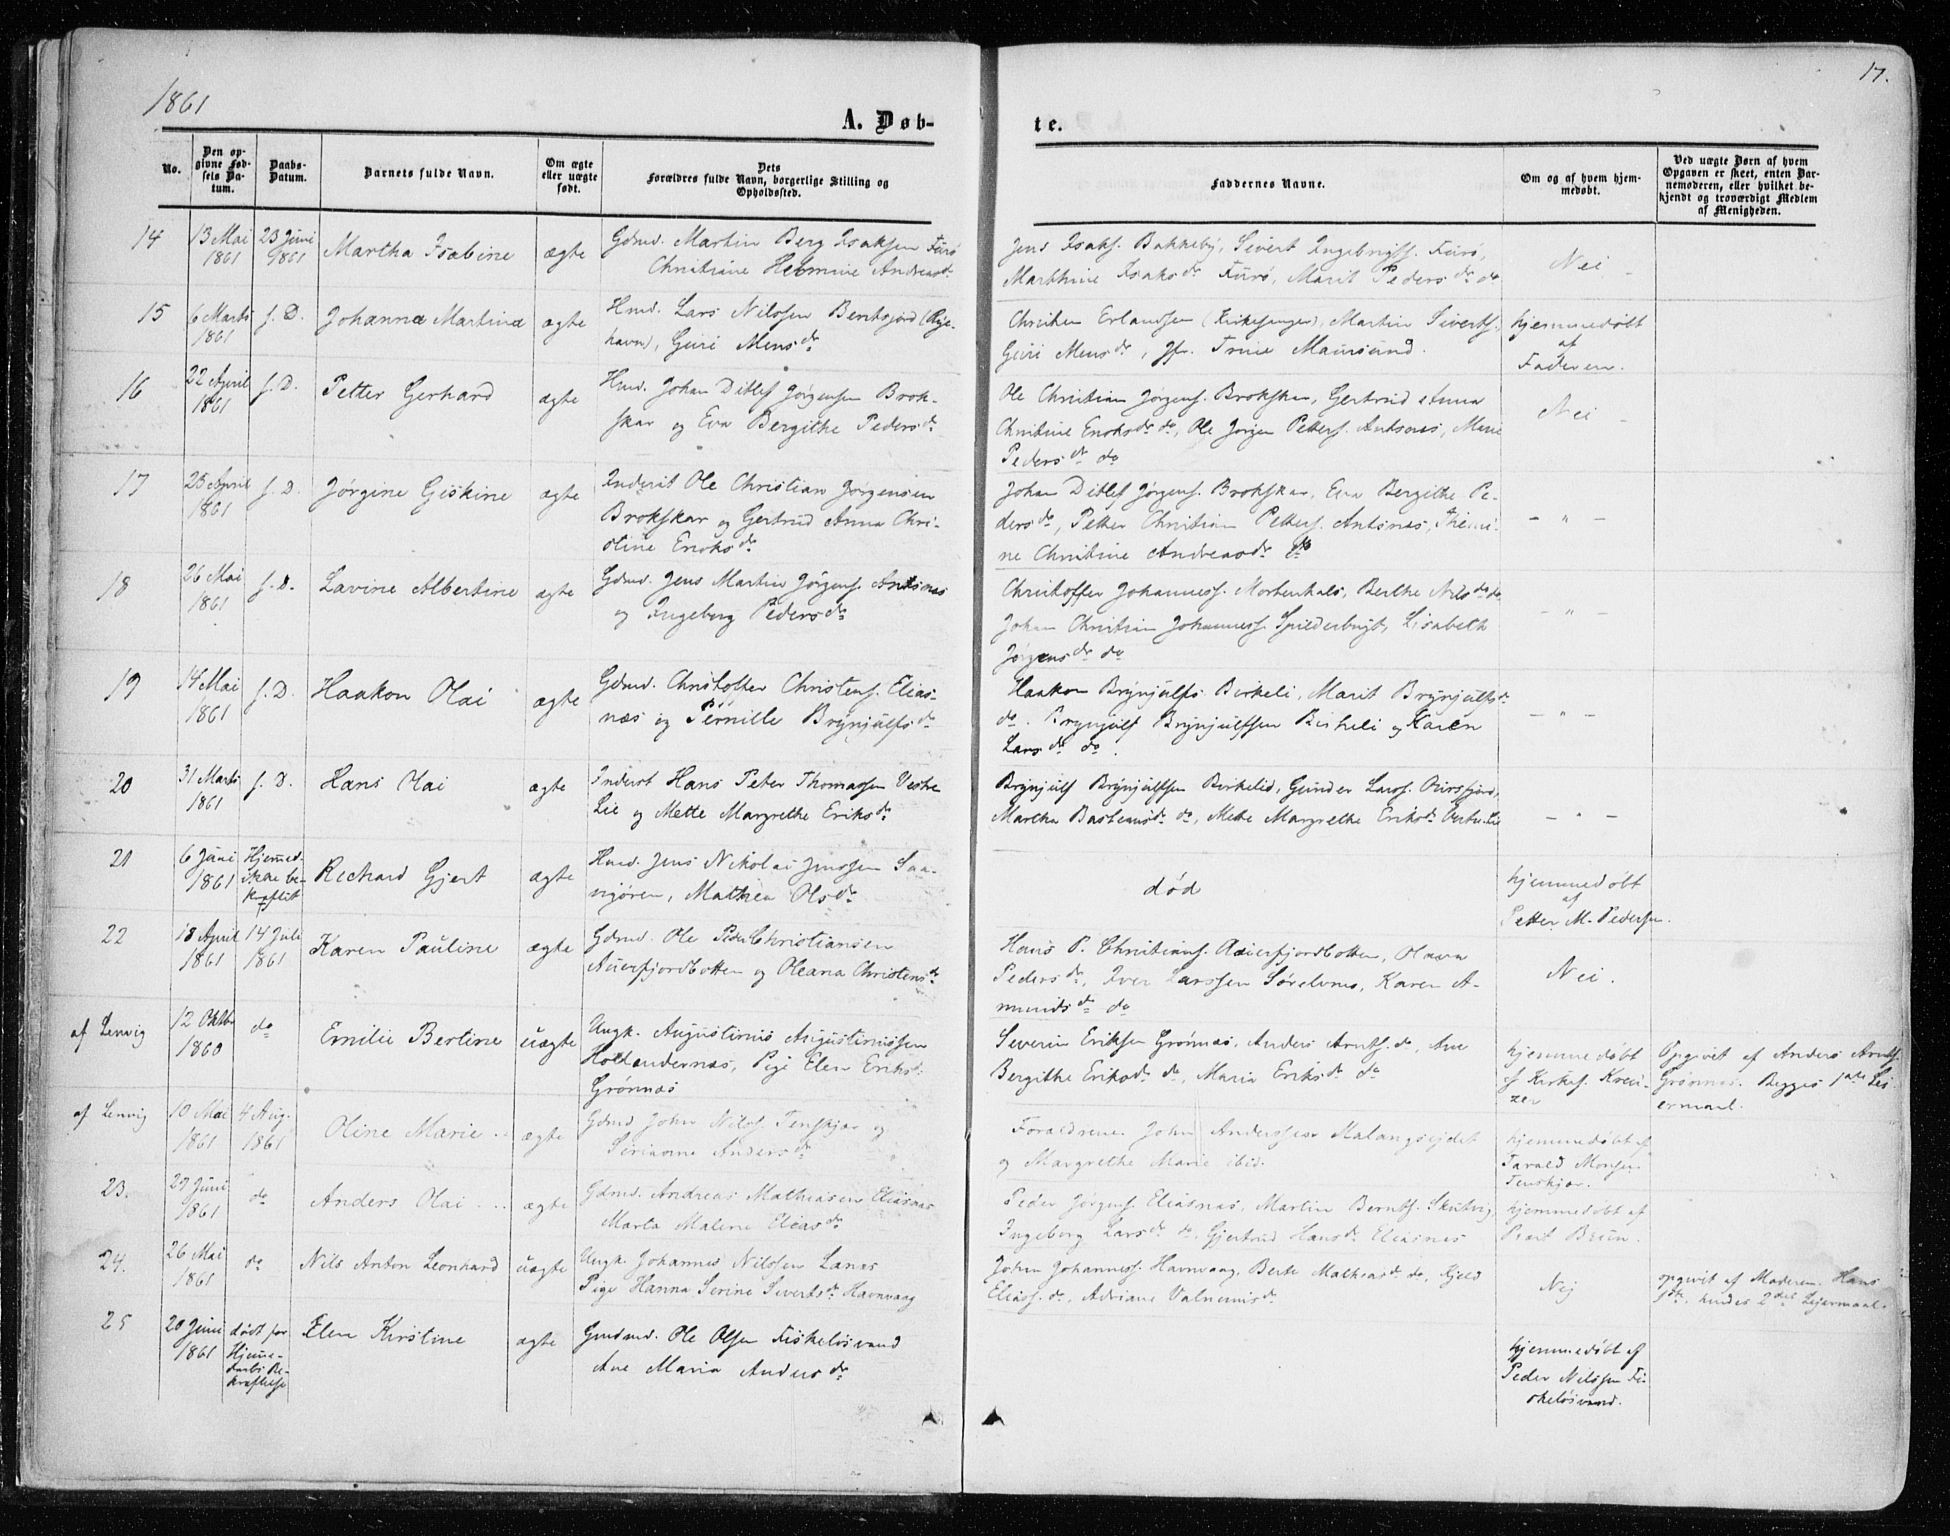 1861
17.
A. Døb-
te.
No.
Den op-
givne Fød-
sels Da-
tum.
Daabs-
Datum.
Barnets fulde Navn.
Om ægte
eller uægte
født.
Dets
Forældres fulde Navn, borgerlige Stilling og
Opholdssted.
Faddernes Navne.
Om og af hvem hjem-
medøbt.
Ved uægte Børn af hvem
Opgaven er skeet, enten Bar-
nemoderen, eller hvilket be-
kjendt og troværdigt Medlem
af Menigheden.
14
13 Mai
1861
23 Juni
1861
Martha Isabine
ægte
Gdmd. Martin Berg Isaksen Furø
Christiane Hermine Andreasdr
Jens Isaks. Bakkeby, Sivert Ingebrigts. Furø,
Marthine Isaksdr Furø, Marit Pedersdr do
Nei
15
6 Marts
1861
f. D.
Johanna Martina
ægte
Hmd. Lars Nilssen Bentsjord (Rye-
havn), Guri Monsdr
Christen Erlandsen (Kirkesanger), Martin Siverts.
Guri Monsdr, Jfr. Trine Maursund.
hjemmedøbt
af
Faderen.
16
22 April
1861
f. D.
Petter Gerhard
ægte
Hmd. Johan Ditlef Jørgensen Brok-
skar og Eva Bergithe Pedersdr
Ole Christian Jørgens. Brokskar, Gertrud Anna
Christine Enoksdr do, Ole Jørgen Petters. Antsnes,
Pedersdr do
Nei
17
25 April
1861
f. D.
Jørgine Giskine
ægte
Inderst Ole Christian Jørgensen
Brokskar og Gertrud Anna Chri-
stine Enoksdr
Johan Ditlef Jørgens. Brokskar, Eva Bergithe Pe-
dersdr, Petter Christian Petters. Antsnes,
ne Christine Andreasdr do
- " -
18
26 Mai
1861
f. D.
Lavine Albertine
ægte
Gdmd. Jens Martin Jørgens. Antsnes
og Ingeborg Pedersdr
Christoffer Johanness. Mortenhals, Berthe Nilsdr do
Johan Christian Johanness. Spilderbugt, Lisabeth
Jørgensdr do
- " -
19
14 Mai
1861
f. D.
Haakon Olai
ægte
Gdmd. Christoffer Christens. Elias-
næs og Pernille Brynjulfsdr
Haakon Brynjulfs. Birkeli, Marit Brynjulfsdr
do. Brynjulf Brynjulfsen Birkeli og Karen
Larsdr do.
- " -
20
31 Marts
1861
f. D.
Hans Olai
ægte
Inderst Hans Peter Thomassen Vestre
Lie og Mette Margrethe Eriksdr
Brynjulf Brynjulfsen Birkelid, Gunder Larss.
Martha Bastiansdr do, Mette Margrethe Eriksdr
- " -
21
6 Juni
1861
Hjemmed.
ikke be-
kræftet
Richard Gjert
ægte
Hmd. Jens Nikolai Jenssen
Mathea Olsdr
død
hjemmedøbt
af
Petter M. Pedersen.
22
18 April
1861
14 Juli
1861
Karen Pauline
ægte
Gdmd. Ole Peder Christiansen
Auerfjordbotten og Oleana Christensdr
Hans P. Christians. Auerfjordbotten,
Pedersdr, Iver Larssen Sørelvnes, Karen A-
mundsdr do
Nei.
af Lenvig
12 Oktbr
1860
do
Emilie Bertine
uægte
Ungk. Augustinus Augustinussen
Hollændernæs, Pige Elen Eriksd.
Grønnæs
Severin Eriksen Grønnæs, Anders Arnts. do, Ane
Bergithe Eriksdr do, Maria Eriksdr do
hjemmedøbt
af Kirkes. Kreu-
zer
Opgivet af Anders Arnts.
Grønnæs. Begges 1ste Lei-
ermaal.
af Lenvig
10 Mai
1861
4 Aug.
1861
Oline Marie
ægte
Gdmd John Nilss. Tenskjær og
Serianne Andersdr
Forældrene. John Anderssen Malangseidet
og Margrethe Marie ibid.
hjemmedøbt af
Tarald Monsen
Tenskjær.
23.
27 Juni
1861
do
Anders Olai
ægte
Gdmd. Andreas Mathiasen Eliasnæs
Marta Malene Eliasdr
Peder Jørgens. Eliasnæs, Martin Bernts. Skutvig
Ingeborg Larsdr do, Gjertrud Hansdr Eliasnæs
hjemmedøbt af
Prost Bruun.
24.
26 Mai
1861
do
Nils Anton Leonhard
uægte
Ungk. Johannes Nilssen Lanes
Pige Hanna Serine Sivertsdr Havnvaag
John Johanness. Havnvaag, Berte Mathiasdr do, Kjeld
Eliass. do, Adriane
Nej
opgivet af Moderen. Hans
1ste, hendes 2det Lejermaal.
25
20 Juni
1861
død før
Hjemme-
daabs Be-
kræftelse
Elen Kirstine
ægte
Gmdmd. Ole Olsen Fiskeløsvand
Ane Maria Andersdr
hjemmedøbt af
Peder Nilssen Fi-
skeløsvand.